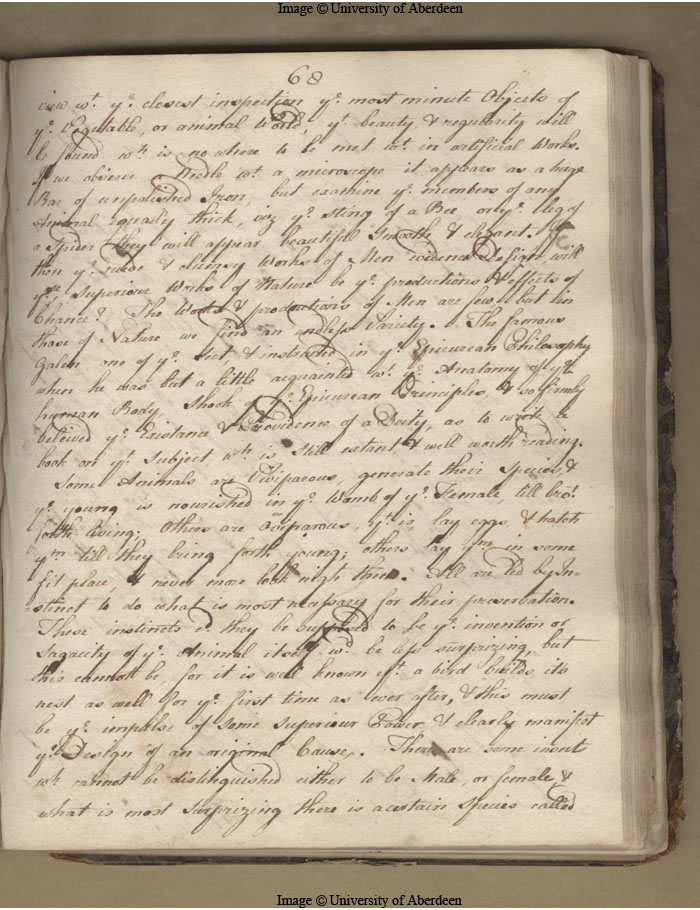 Image © University of Aberdeen
68
view wt. ye. closest inspection ye. most minute Objects of
ye. Vegetable, or animal World, yt. beauty & regularity will
be found wh. is no where to be met wt. in artificial Works.
If we observe a Needle wt. a microscope it appears as a huge
Bar of unpolished Iron, but examine ye. members of any
Animal Equally thick, viz ye. sting of a Bee or ye. leg of
a Spider they will appear beautiful Smooth & elegant. If
then ye. rude & clumsy Works of Men evidence Design will
ye. superiour Works of Nature be ye. productions & effects of
Chance? The Works & productions of Men are few but in
those of Nature we find an endless Variety. The famous
Galen one of ye. Sect & instructed in ye. Epicurean Philosophy
when he was but a little acquainted wt. ye. Anatomy of ye.
human Body, Shook ye. Epicurean Principles, & so firmly
beleived ye. Existance & Providence of a Deity, as to write a
book on yt. subject wh. is still extant & well worth reading.
Some Animals are Viviparous, generate their Species, &
ye. young is nourished in ye. Womb of ye. Female, till bro't
forth living; Others are Oviparous, yt. is, lay eggs, & hatch
ym. till they bring forth young; others lay ym. in some
fit place, & never more look nigh them. All are led by In-
-stinct to do what is most necessary for their preservation.
These instincts if they be supposed to be ye. invention or
Sagacity of ye. Animal itself wd. be less surprizing, but
this cannot be, for it is well known yt. a bird builds its
nest as well for ye. first time as ever after, & this must
be ye. impulse of some superiour Power & clearly manifest
ye. Design of an original Cause. There are some insects
wh. cannot be distinguished either to be Male, or female, &
what is most surprizing there is a certain species called
Image © University of Aberdeen